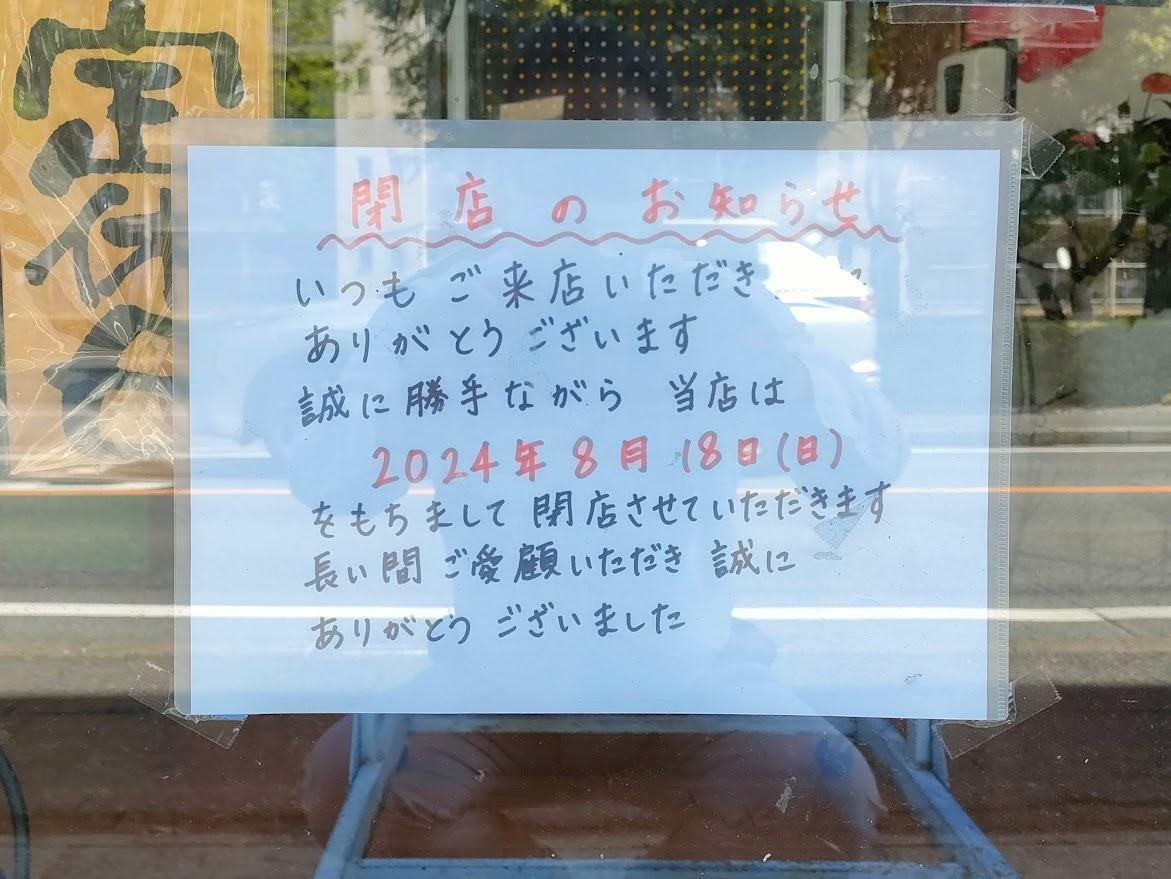 閉店のお知らせ
いつもご来店いただき
ありがとうございます
誠に勝手ながら 当店は
2024年8月18日(日)
をもちまして閉店させていただきます
長い間ご愛顧いただき 誠に
ありがとうございました